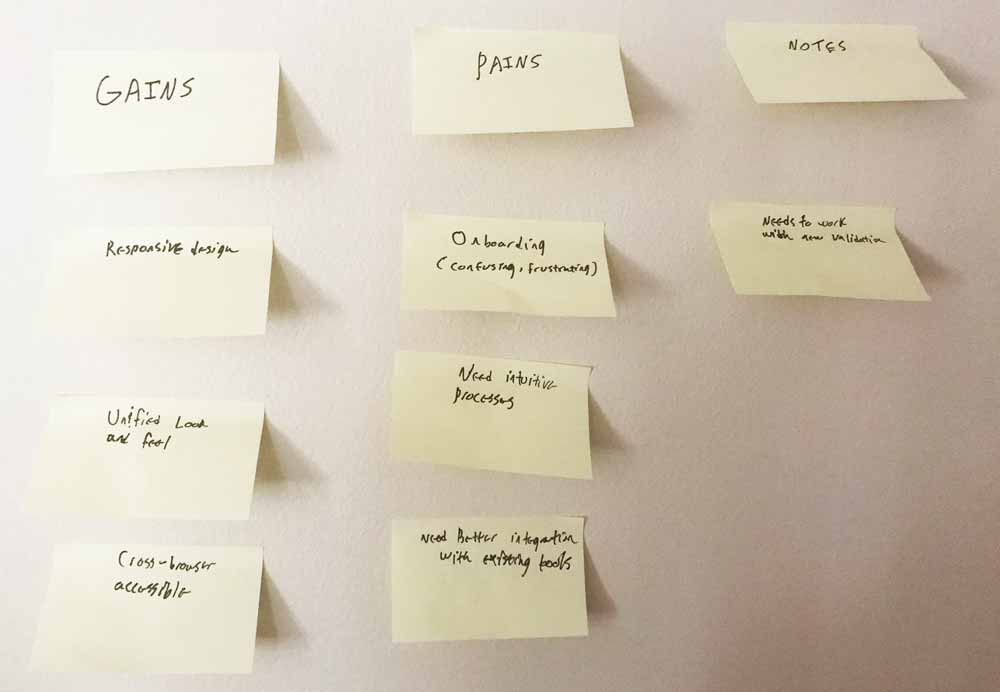 GAINS
Responsive design
Unified Look
and feel
Cross-browser
accessible
PAINS
Onboarding
(confusing, frustrating)
Need intuitive
processes
Need Better integration
with existing tools
NOTES
Needs to work
with new validation